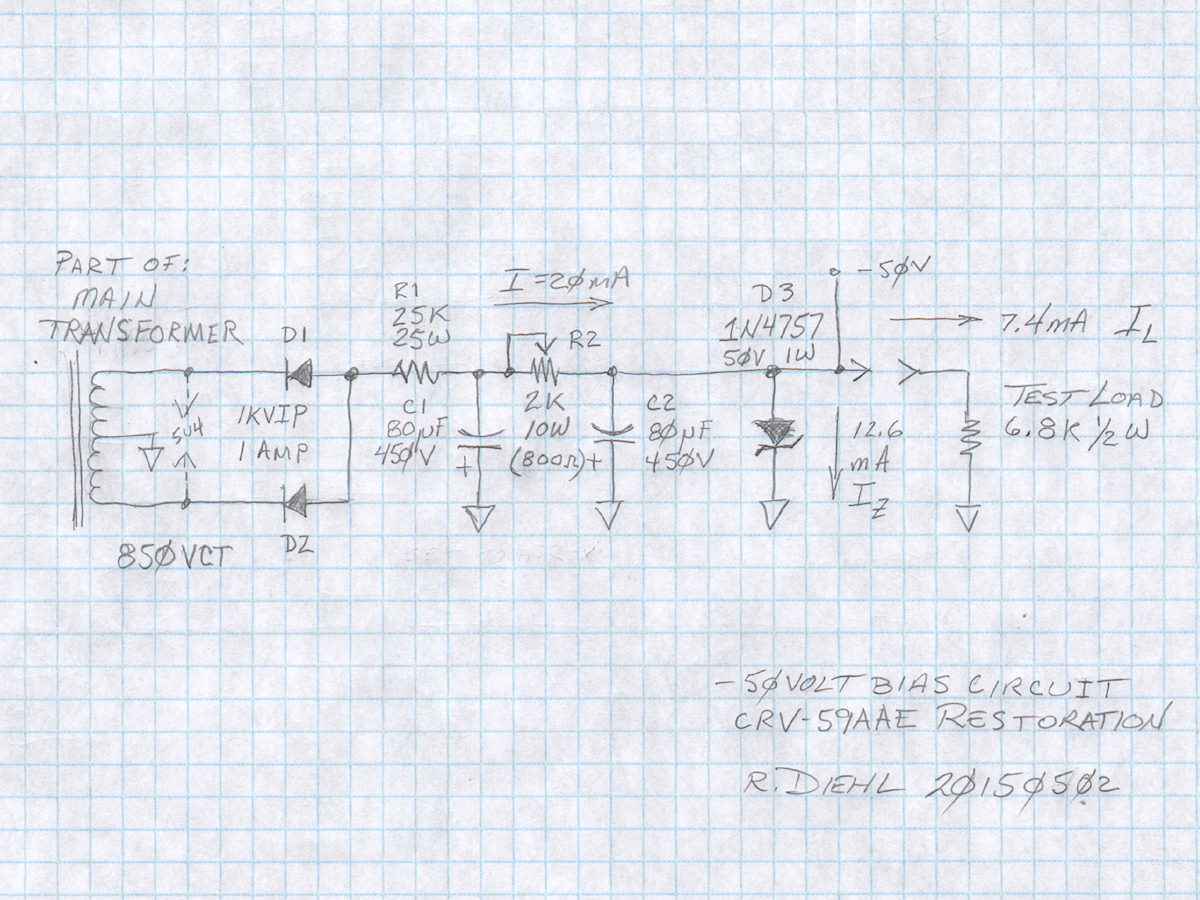 PART OF:
MAIN
TRANSFORMER
D1
1KVIP
1 AMP
5U4
D2
850VCT
R1
25K
25W
I = 20mA
R2
2K
10W
(800Ω)
C1
80µF
450V
+
C2
80µF
450V
+
D3
1N4757
50V 1W
-50V
7.4mA IL
12.6
mA
IZ
TEST LOAD
6.8K ½W
-50VOLT BIAS CIRCUIT
CRV-59AAE RESTORATION
R. DIEHL 20150502